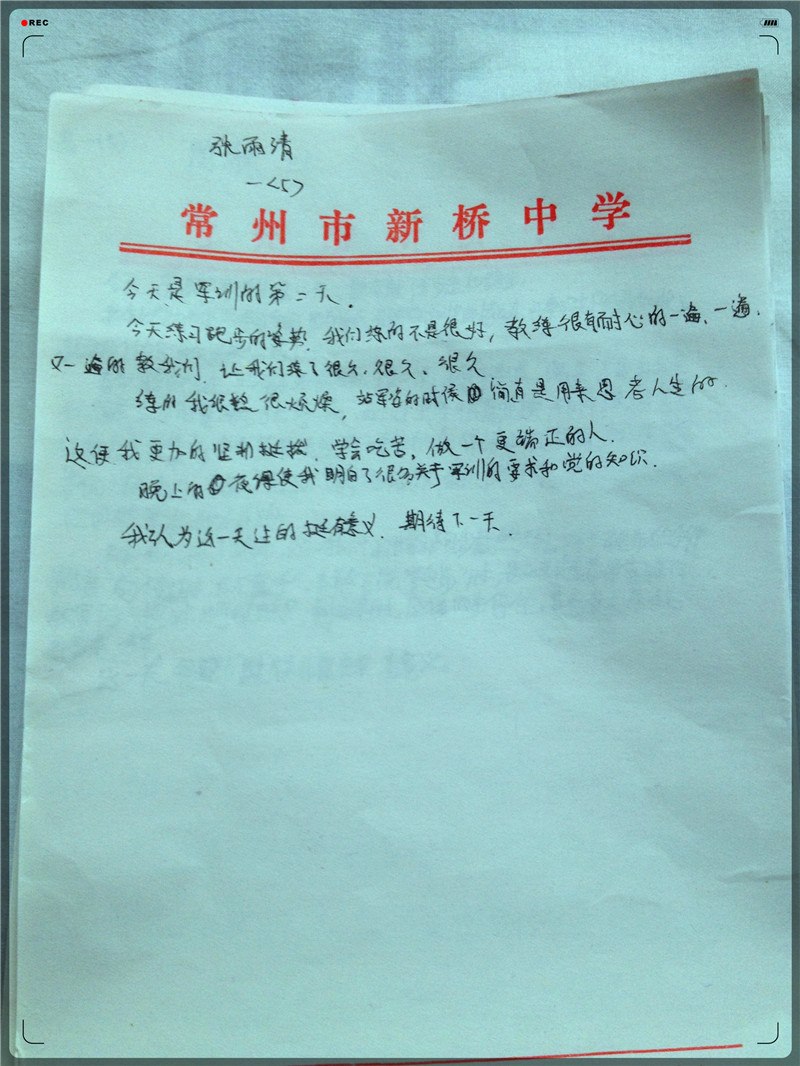 REC
张雨清
一<5>
常州市新桥中学
今天是军训的第二天.
今天练习跑步的姿势.我们练的不是很好,教练很有耐心的一遍、一遍、
又一遍的教我们.让我们练了很久.很久、很久
练的我很热很烦燥,站军姿的时候简直是用来思考人生的.
这使我更加的坚韧挺拔.学会吃苦,做一个更端正的人.
晚上的夜课使我明白了很多关于军训的要求和党的知识.
我认为这一天过的挺有意义.期待下一天.